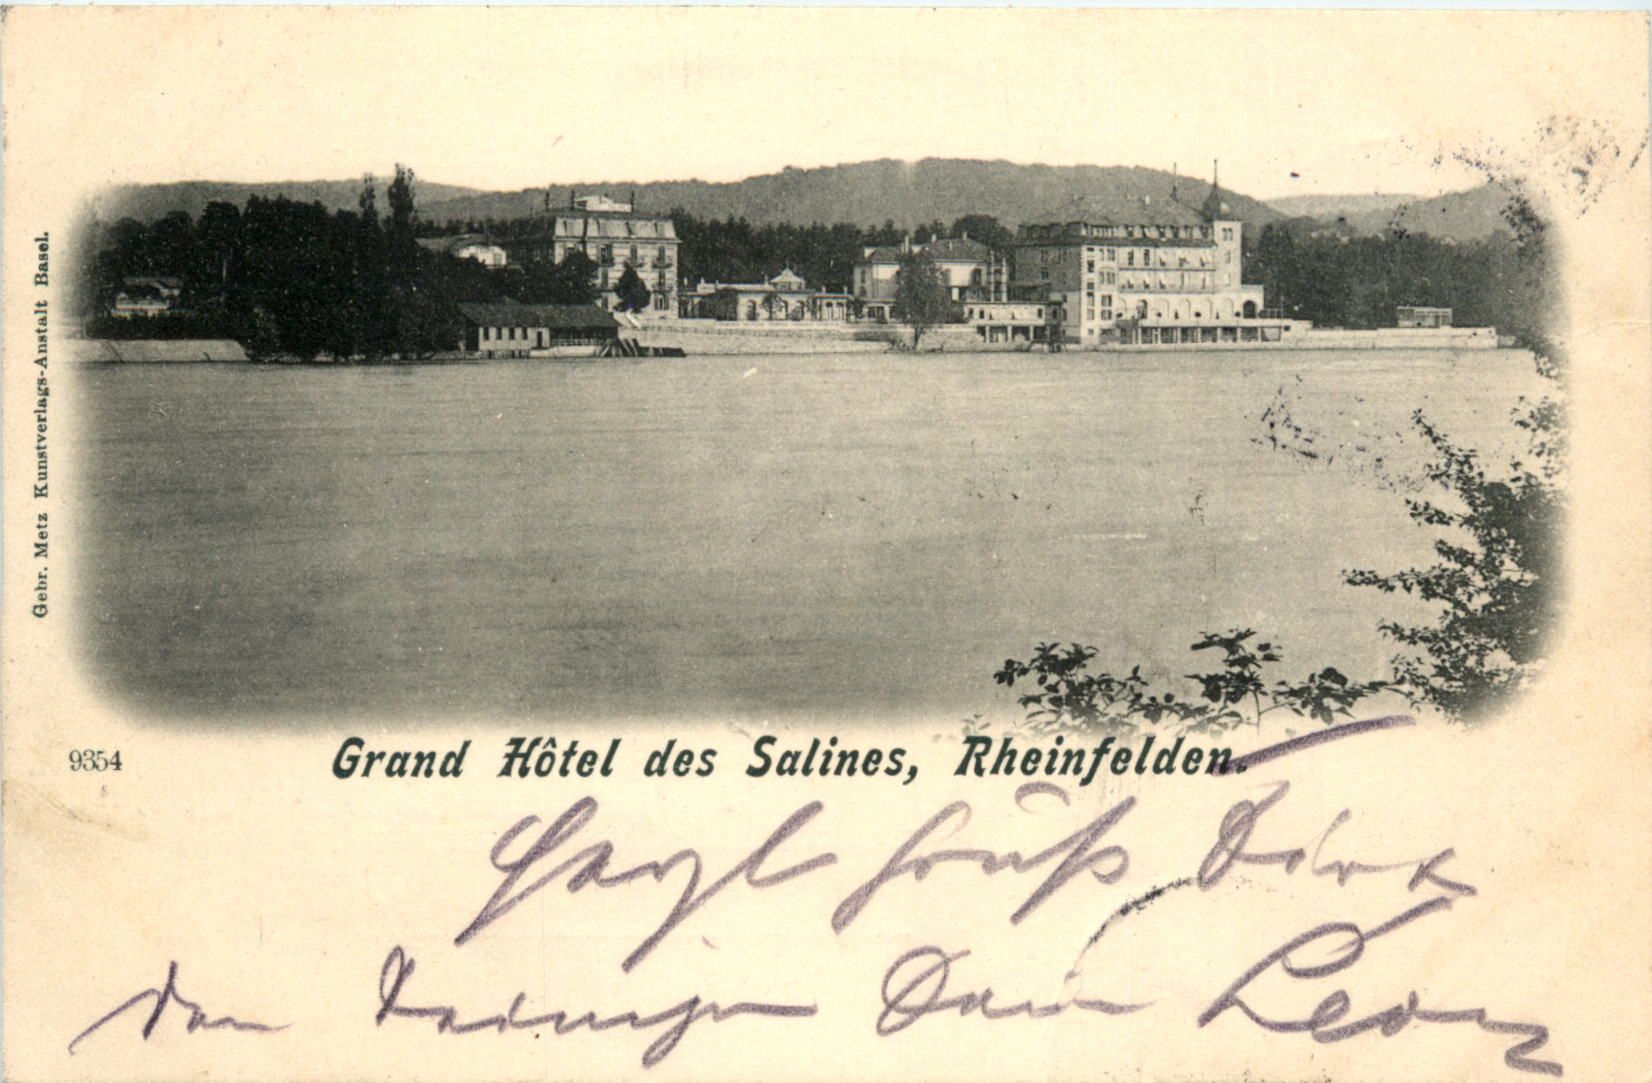 Gebr. Metz Kunstverlags-Anstalt Basel.
9354
Grand Hôtel des Salines, Rheinfelden.
Herzl Gruß
den Dein Leon